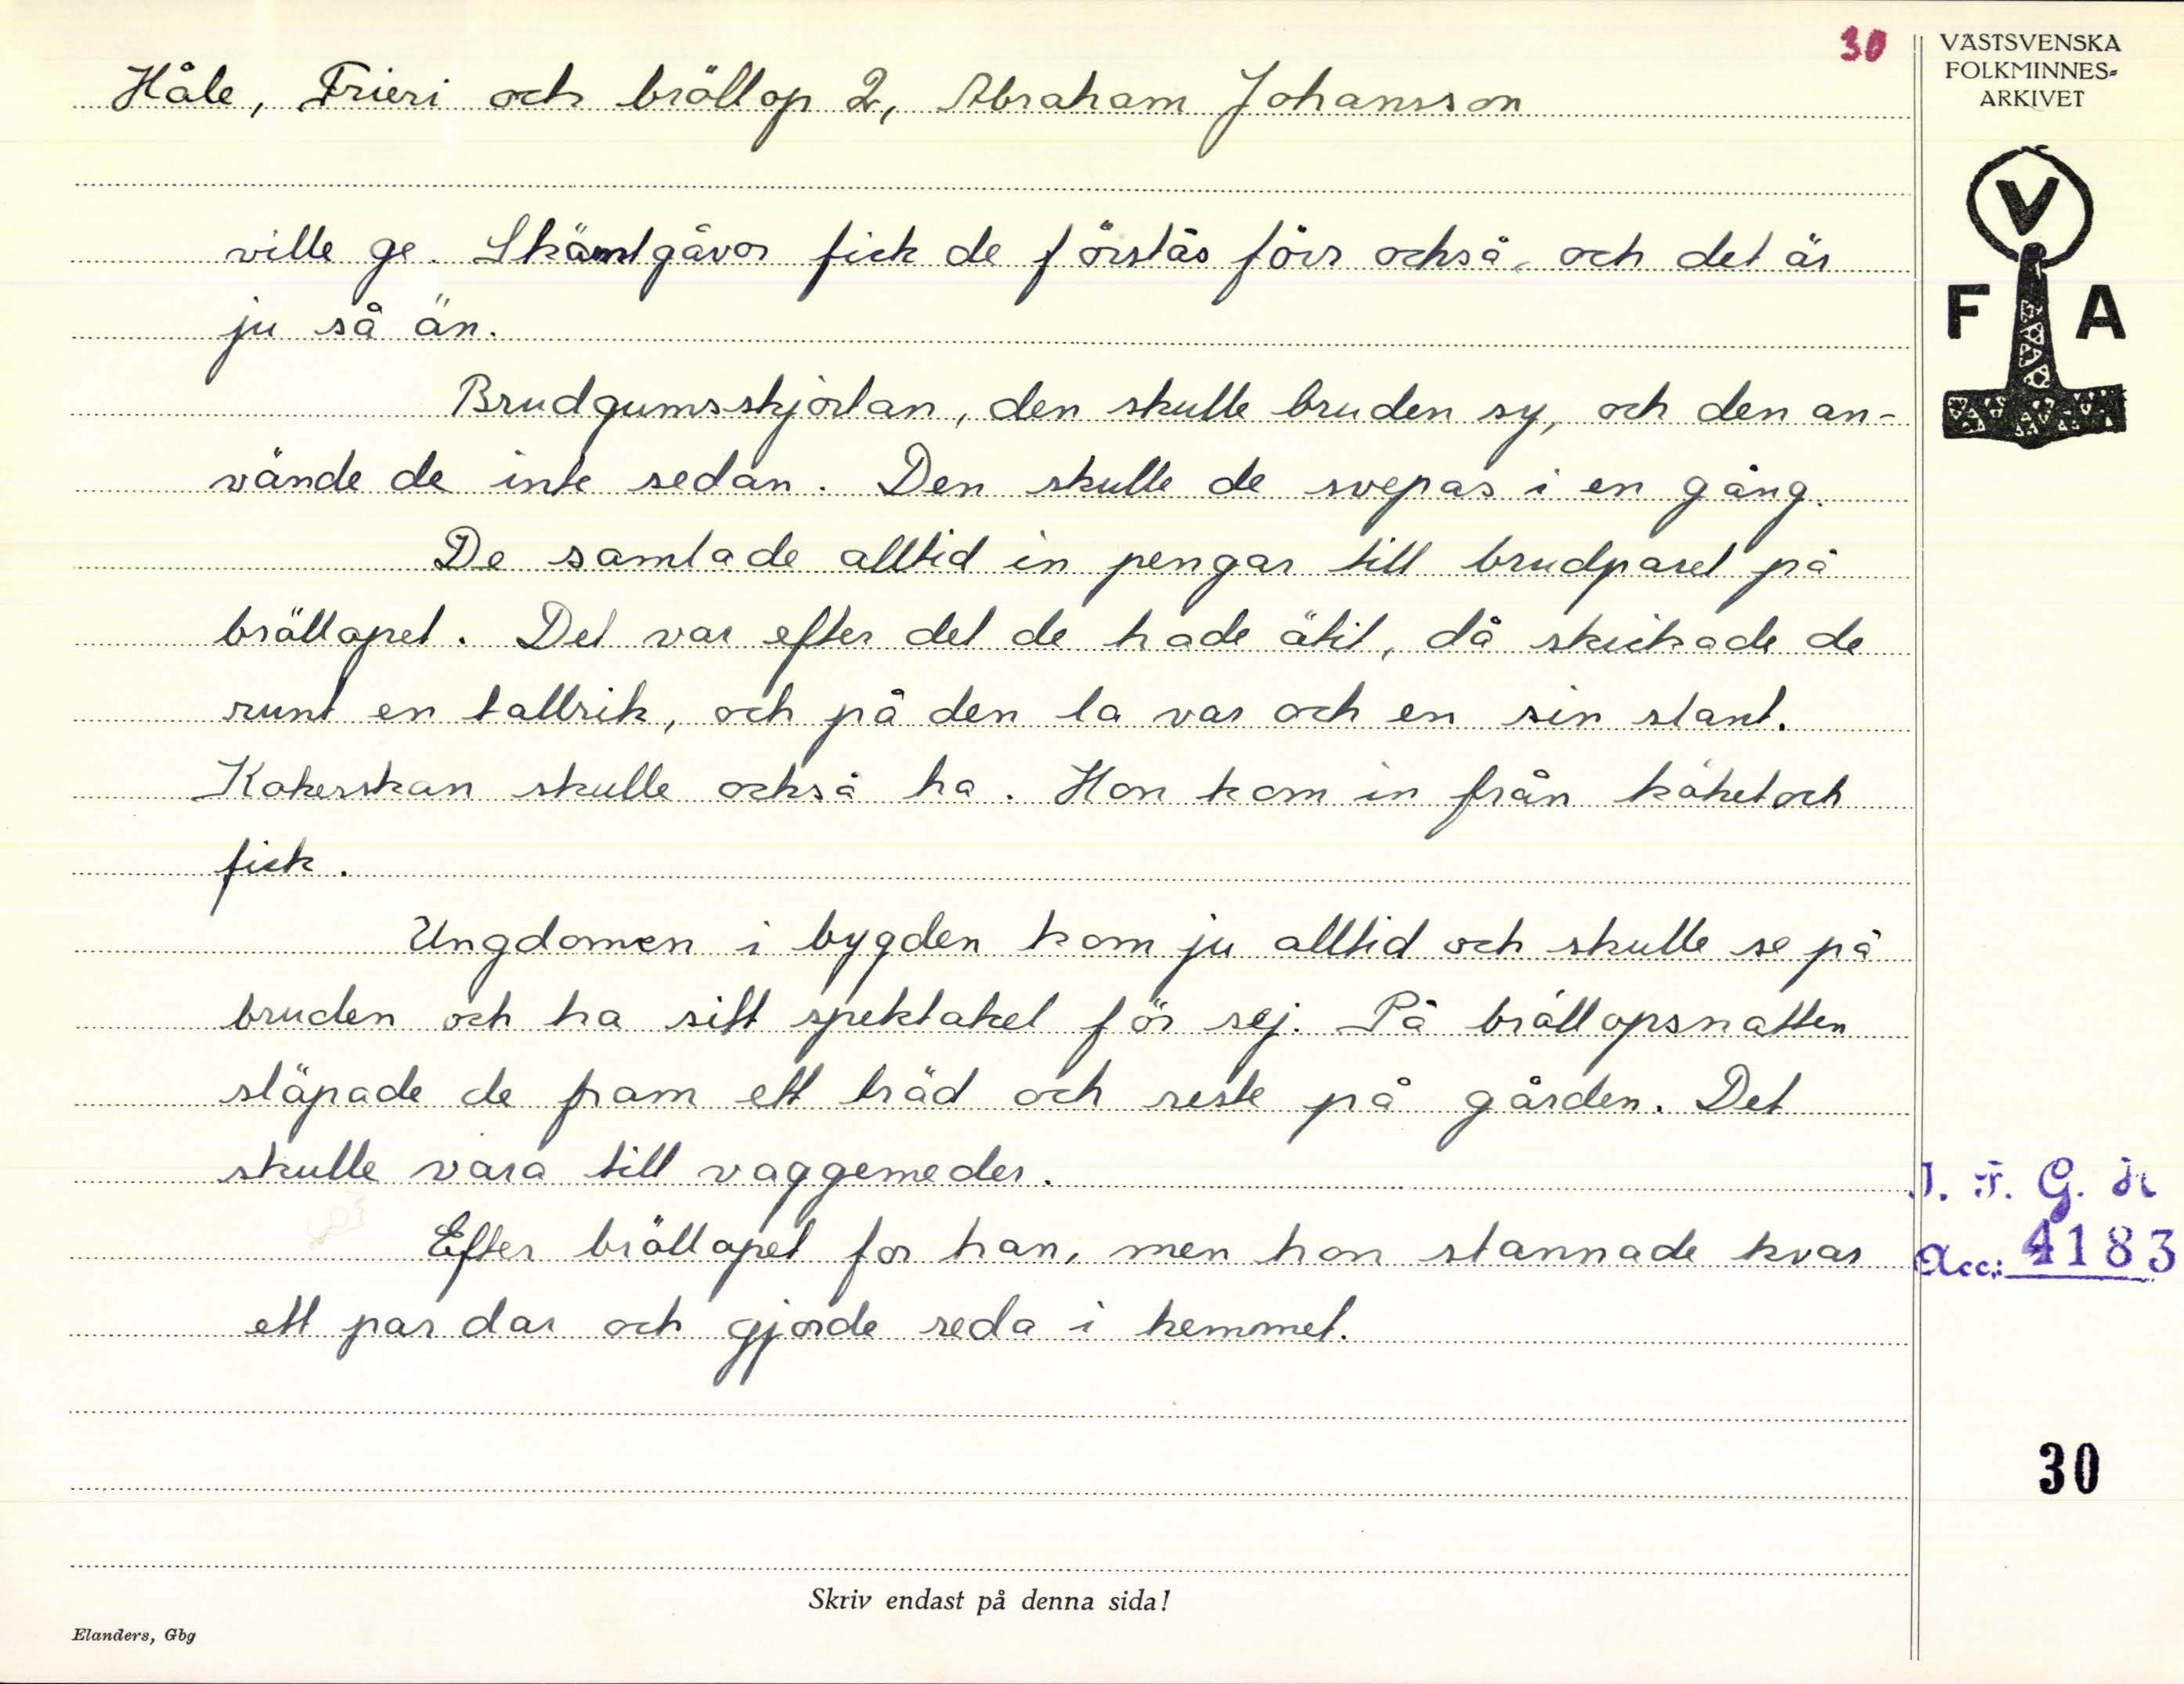 30
Håle, Frieri och bröllop 2, Abraham Johansson
ville ge. Skämtgåvor fick de förstås förr också, och det är
ju så än.
Brudgumsskjortan, den skulle bruden sy, och den an-
vände de inte sedan. Den skulle de svepas i en gång.
De samlade alltid in pengar till brudparet på
bröllopet. Det var efter det de hade ätit, då skickade de
runt en tallrik, och på den la var och en sin slant.
Kokerskan skulle också ha. Hon kom in från köket och
fick.
Ungdomen i bygden kom ju alltid och skulle se på
bruden och ha sitt spektakel för sej. På bröllopsnatten
släpade de fram ett träd och reste på gården. Det
skulle vara till vaggemeder.
Efter bröllopet for han, men hon stannade kvar
ett par dar och gjorde reda i hemmet.
Skriv endast på denna sida!
Elanders, Gbg
VÄSTSVENSKA
FOLKMINNES=
ARKIVET
V
F A
I. F. G. H
Acc: 4183
30